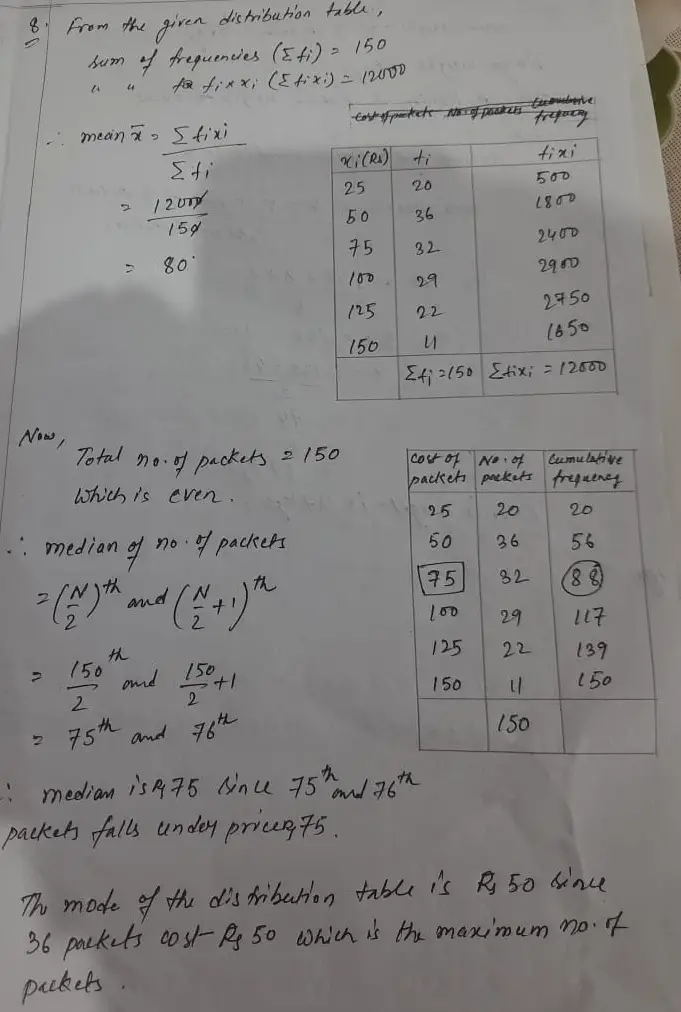 8. From the given distribution table,
sum of frequencies (Σfi) = 150
" " for fi×xi (Σfixi) = 12000
∴ mean x̄ = Σfixi / Σfi
= 12000 / 150
= 80
Cost of packets No. of packets Cumulative frequency
xi(Rs) fi fixi
25 20 500
50 36 1800
75 32 2400
100 29 2900
125 22 2750
150 11 1650
Σfi=150 Σfixi = 12000
Now,
Total no. of packets = 150
Which is even.
∴ median of no. of packets
= (N/2)th and (N/2 + 1)th
= 150/2 th and 150/2 + 1
= 75th and 76th
Cost of packets No. of packets Cumulative frequency
25 20 20
50 36 56
75 32 88
100 29 117
125 22 139
150 11 150
150
∴ median is Rs 75 since 75th and 76th
packets falls under price Rs 75.
The mode of the distribution table is Rs 50 since
36 packets cost Rs 50 which is the maximum no. of
packets.